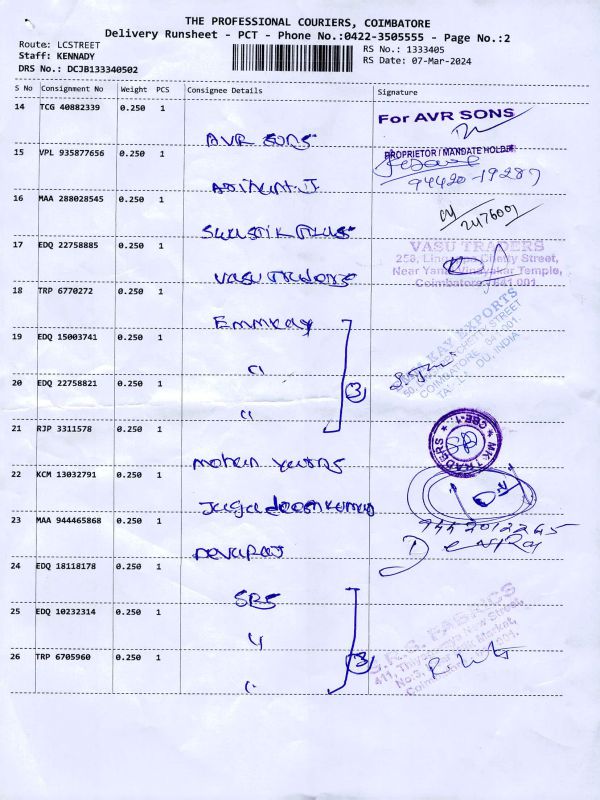 THE PROFESSIONAL COURIERS, COIMBATORE
Delivery Runsheet - PCT - Phone No.:0422-3505555 - Page No.:2
Route: LCSTREET
Staff: KENNADY
DRS No.: DCJB133340502
RS No.: 1333405
RS Date: 07-Mar-2024
S No Consignment No Weight PCS Consignee Details Signature
14 TCG 40882339 0.250 1
AVR SONS
For AVR SONS
PROPRIETOR / MANDATE HOLDER
15 VPL 935877656 0.250 1
94420-19287
16 MAA 288028545 0.250 1
2476001
17 EDQ 22758885 0.250 1
VASU TRADERS
VASU TRADERS
Chetty Street,
Temple,
18 TRP 6770272 0.250 1
Emmkay
KAY EXPORTS
19 EDQ 15003741 0.250 1
"
20 EDQ 22758821 0.250 1
"
3
21 RJP 3311578 0.250 1
mohan yarns
MK TRADERS
CBE-1
22 KCM 13032791 0.250 1
Jagadeeshkumar
23 MAA 944465868 0.250 1
Devaraj
9442012265
24 EDQ 18118178 0.250 1
SRS
25 EDQ 10232314 0.250 1
"
FABRICS
Street,
Market,
26 TRP 6705960 0.250 1
"
3